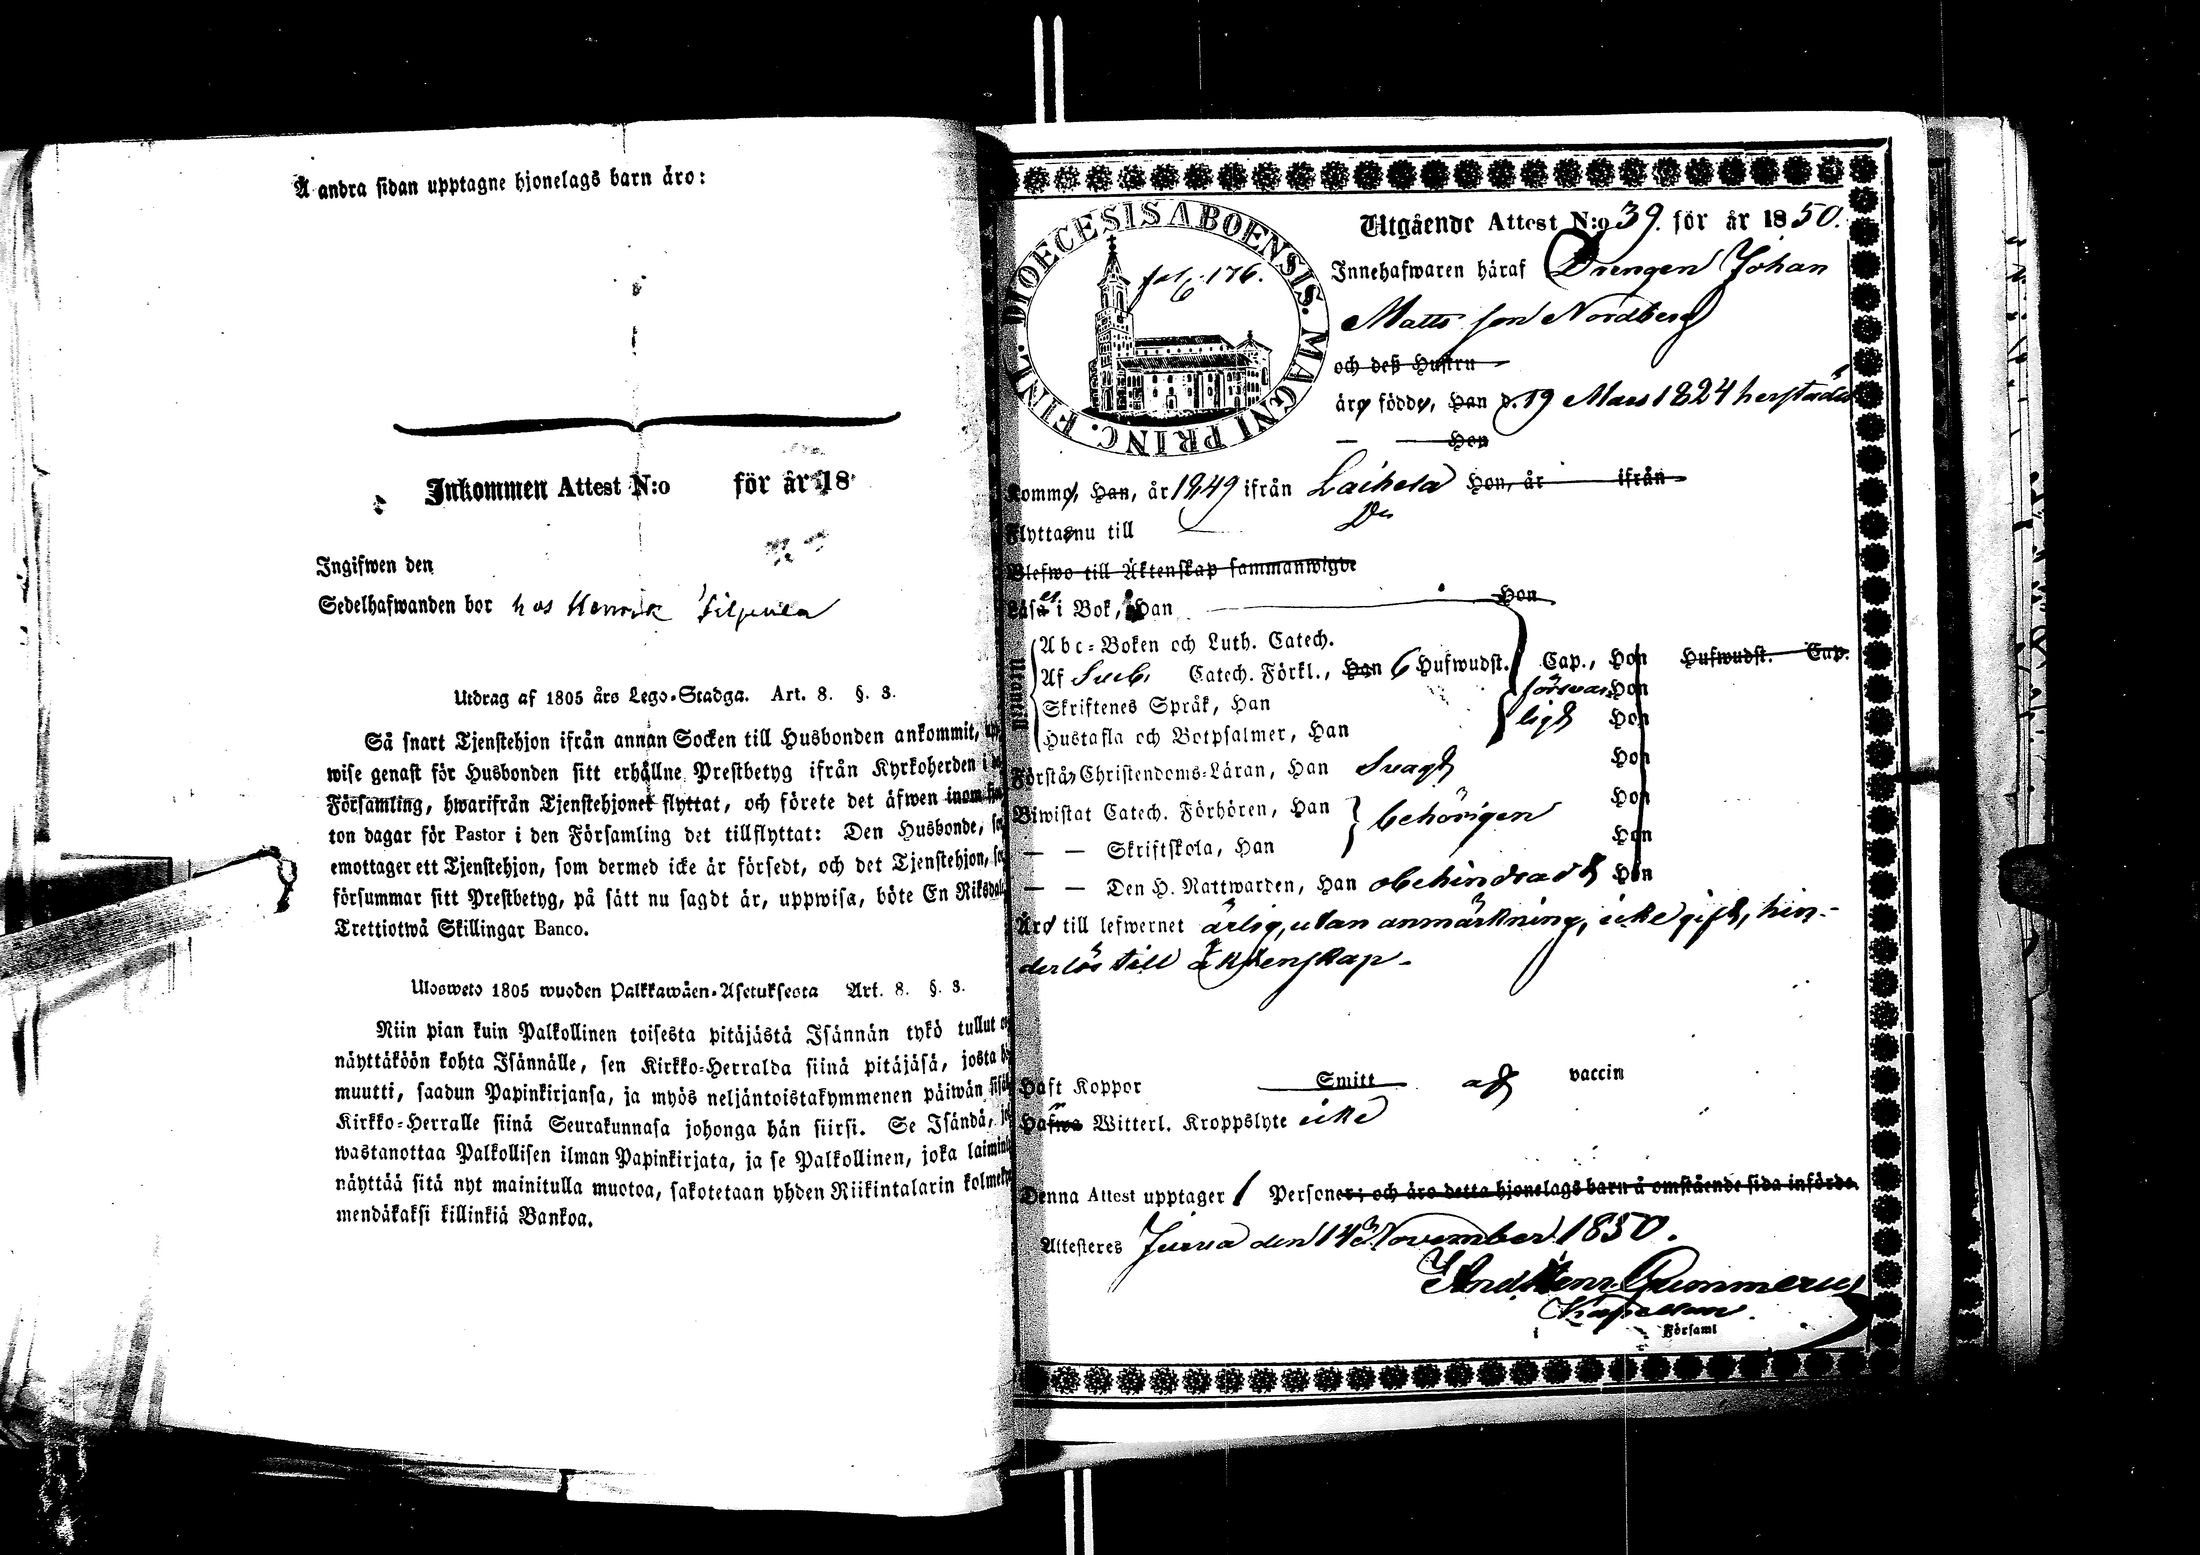 Å andra sidan upptagne hjonelags barn äro:
Inkommen Attest N:o för år 18
Ingifwen den
Sedelhafwanden bor hos Henrik
Utdrag af 1805 års Lego-Stadga. Art. 8. §. 3.
Så snart Tjenstehjon ifrån annan Socken till Husbonden ankommit,
wise genast för Husbonden sitt erhållne Prestbetyg ifrån Kyrkoherden i
Församling, hwarifrån Tjenstehjonet flyttat, och förete det äfwen inom
ton dagar för Pastor i den Församling det tillflyttat: Den Husbonde,
emottager ett Tjenstehjon, som dermed icke är försedt, och det Tjenstehjon,
försummar sitt Prestbetyg, på sätt nu sagdt är, uppwisa, böte En Riksdal
Trettiotwå Skillingar Banco.
Ulosweto 1805 wuoden Palkkawäen-Asetuksesta Art. 8. §. 3.
Niin pian kuin Palkollinen toisesta pitäjästä Isännän tykö tullut
näyttäköön kohta Isännälle, sen Kirkko-Herralda siinä pitäjäsä, josta
muutti, saadun Papinkirjansa, ja myös neljäntoistakymmenen päiwän
Kirkko-Herralle siinä Seurakunnasa johonga hän siirsi. Se Isändä,
wastanottaa Palkollisen ilman Papinkirjata, ja se Palkollinen, joka
näyttää sitä nyt mainitulla muotoa, sakotetaan yhden Riikintalarin
mendäkaksi killinkiä Bankoa.
DIOECESIS ABOENSIS. MAGNI PRINC. FINL.
fol. 176.
Utgående Attest N:o 39. för år 1850.
Innehafwaren häraf Drengen Johan
Matts son Nordberg
och deß Hustru
äro födde, Han d. 19 Mars 1824 herstädes
— — Hon
Komme, Han, år 1849 ifrån Laihela Hon, år ifrån
Flyttas nu till Do
Blefwo till Äktenskap sammanwigde
Läsa i Bok, Han Hon
Utanwill
Abc-Boken och Luth. Catech.
Af Sveb. Catech. Förkl., Han 6 Hufwudst. Cap., Hon Hufwudst. Cap.
Skriftenes Språk, Han försvar Hon
Hustafla och Botpsalmer, Han ligt Hon
Förstår Christendoms-Läran, Han Svagt Hon
Biwistat Catech. Förhören, Han behörigen Hon
— — Skriftskola, Han Hon
— — Den H. Nattwarden, Han obehindradt Hon
Äro till lefwernet ärlig, utan anmärkning, icke gift, hin-
derlös till äktenskap.
Haft Koppor Smitt af vaccin
Hafwa Witterl. Kroppslyte icke
Denna Attest upptager 1 Personer; och äro detta hjonelags barn å omstående sida införde.
Attesteres Jurva den 14 November 1850.
And Henr Gummerus
Kapellan
i Församl